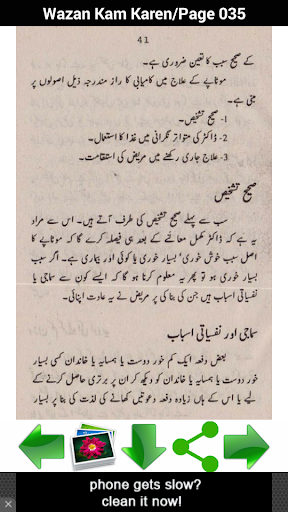 Wazan Kam Karen/Page 035
41
کے صحیح سبب کا تعین ضروری ہے۔
موٹاپے کے علاج میں کامیابی کا راز مندرجہ ذیل اصولوں پر
مبنی ہے۔
1- صحیح تشخیص۔
2- ڈاکٹر کی متواتر نگرانی میں غذا کا استعمال۔
3- علاج جاری رکھنے میں مریض کی استقامت۔
صحیح تشخیص
سب سے پہلے صحیح تشخیص کی طرف آتے ہیں۔ اس سے مراد
یہ ہے کہ ڈاکٹر مکمل معائنے کے بعد ہی فیصلہ کرے گا کہ موٹاپے کا
اصل سبب خوش خوری / بسیار خوری یا کوئی اور بیماری ہے۔ اگر سبب
بسیار خوری ہو تو پھر یہ معلوم کرنا ہو گا کہ ایسے کون سے سماجی یا
نفسیاتی اسباب ہیں جن کی بنا کی پر مریض نے یہ عادت اپنائی۔
سماجی اور نفسیاتی اسباب
بعض دفعہ ایک کم خور دوست یا ہمسایہ یا خاندان کسی بسیار
خور دوست یا ہمسایہ یا خاندان کو دیکھ کر ان پر برتری حاصل کرنے کے
لیے یا اس کے ہاں زیادہ دفعہ دعوتیں کھانے کی لذت کی بنا پر بسیار
phone gets slow?
clean it now!